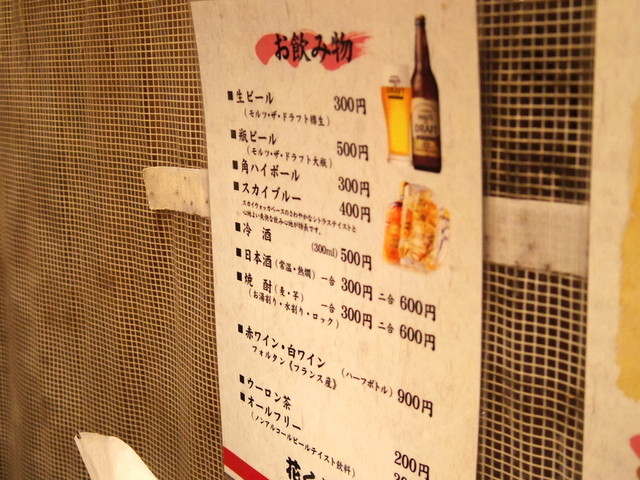 お飲み物
■生ビール 300円
(モルツ・ザ・ドラフト樽生)
■瓶ビール 500円
(モルツ・ザ・ドラフト大瓶)
■角ハイボール 300円
■スカイブルー 400円
スカイウォッカベースのさわやかなシトラステイストと
心地よい爽快な飲み心地が特長です。
■冷酒 (300ml) 500円
■日本酒(常温・熱燗) 一合 300円 二合 600円
■焼酎(麦・芋) 一合 300円 二合 600円
(お湯割り・水割り・ロック)
■赤ワイン・白ワイン (ハーフボトル) 900円
フォルタン《フランス産》
■ウーロン茶 200円
■オールフリー
(ノンアルコールビールテイスト飲料)
花
DRAFT
DRAFT